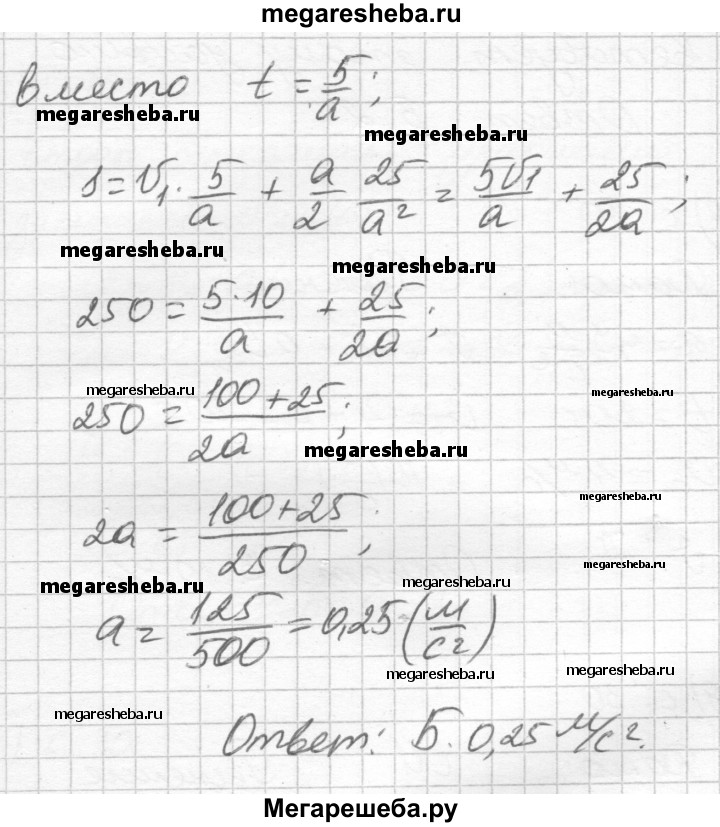 megaresheba.ru
вместо t = 5/a;
megaresheba.ru
megaresheba.ru
s = v₁ · 5/a + a/2 25/a² = 5v₁/a + 25/2a;
megaresheba.ru
megaresheba.ru
250 = 5·10/a + 25/2a;
megaresheba.ru
megaresheba.ru
250 = 100+25/2a;
megaresheba.ru
megaresheba.ru
2a = 100+25/250;
megaresheba.ru
megaresheba.ru
megaresheba.ru
a = 125/500 = 0,25 (м/с²)
megaresheba.ru
megaresheba.ru
megaresheba.ru
Ответ: Б. 0,25 м/с².
Мегарешеба.ру